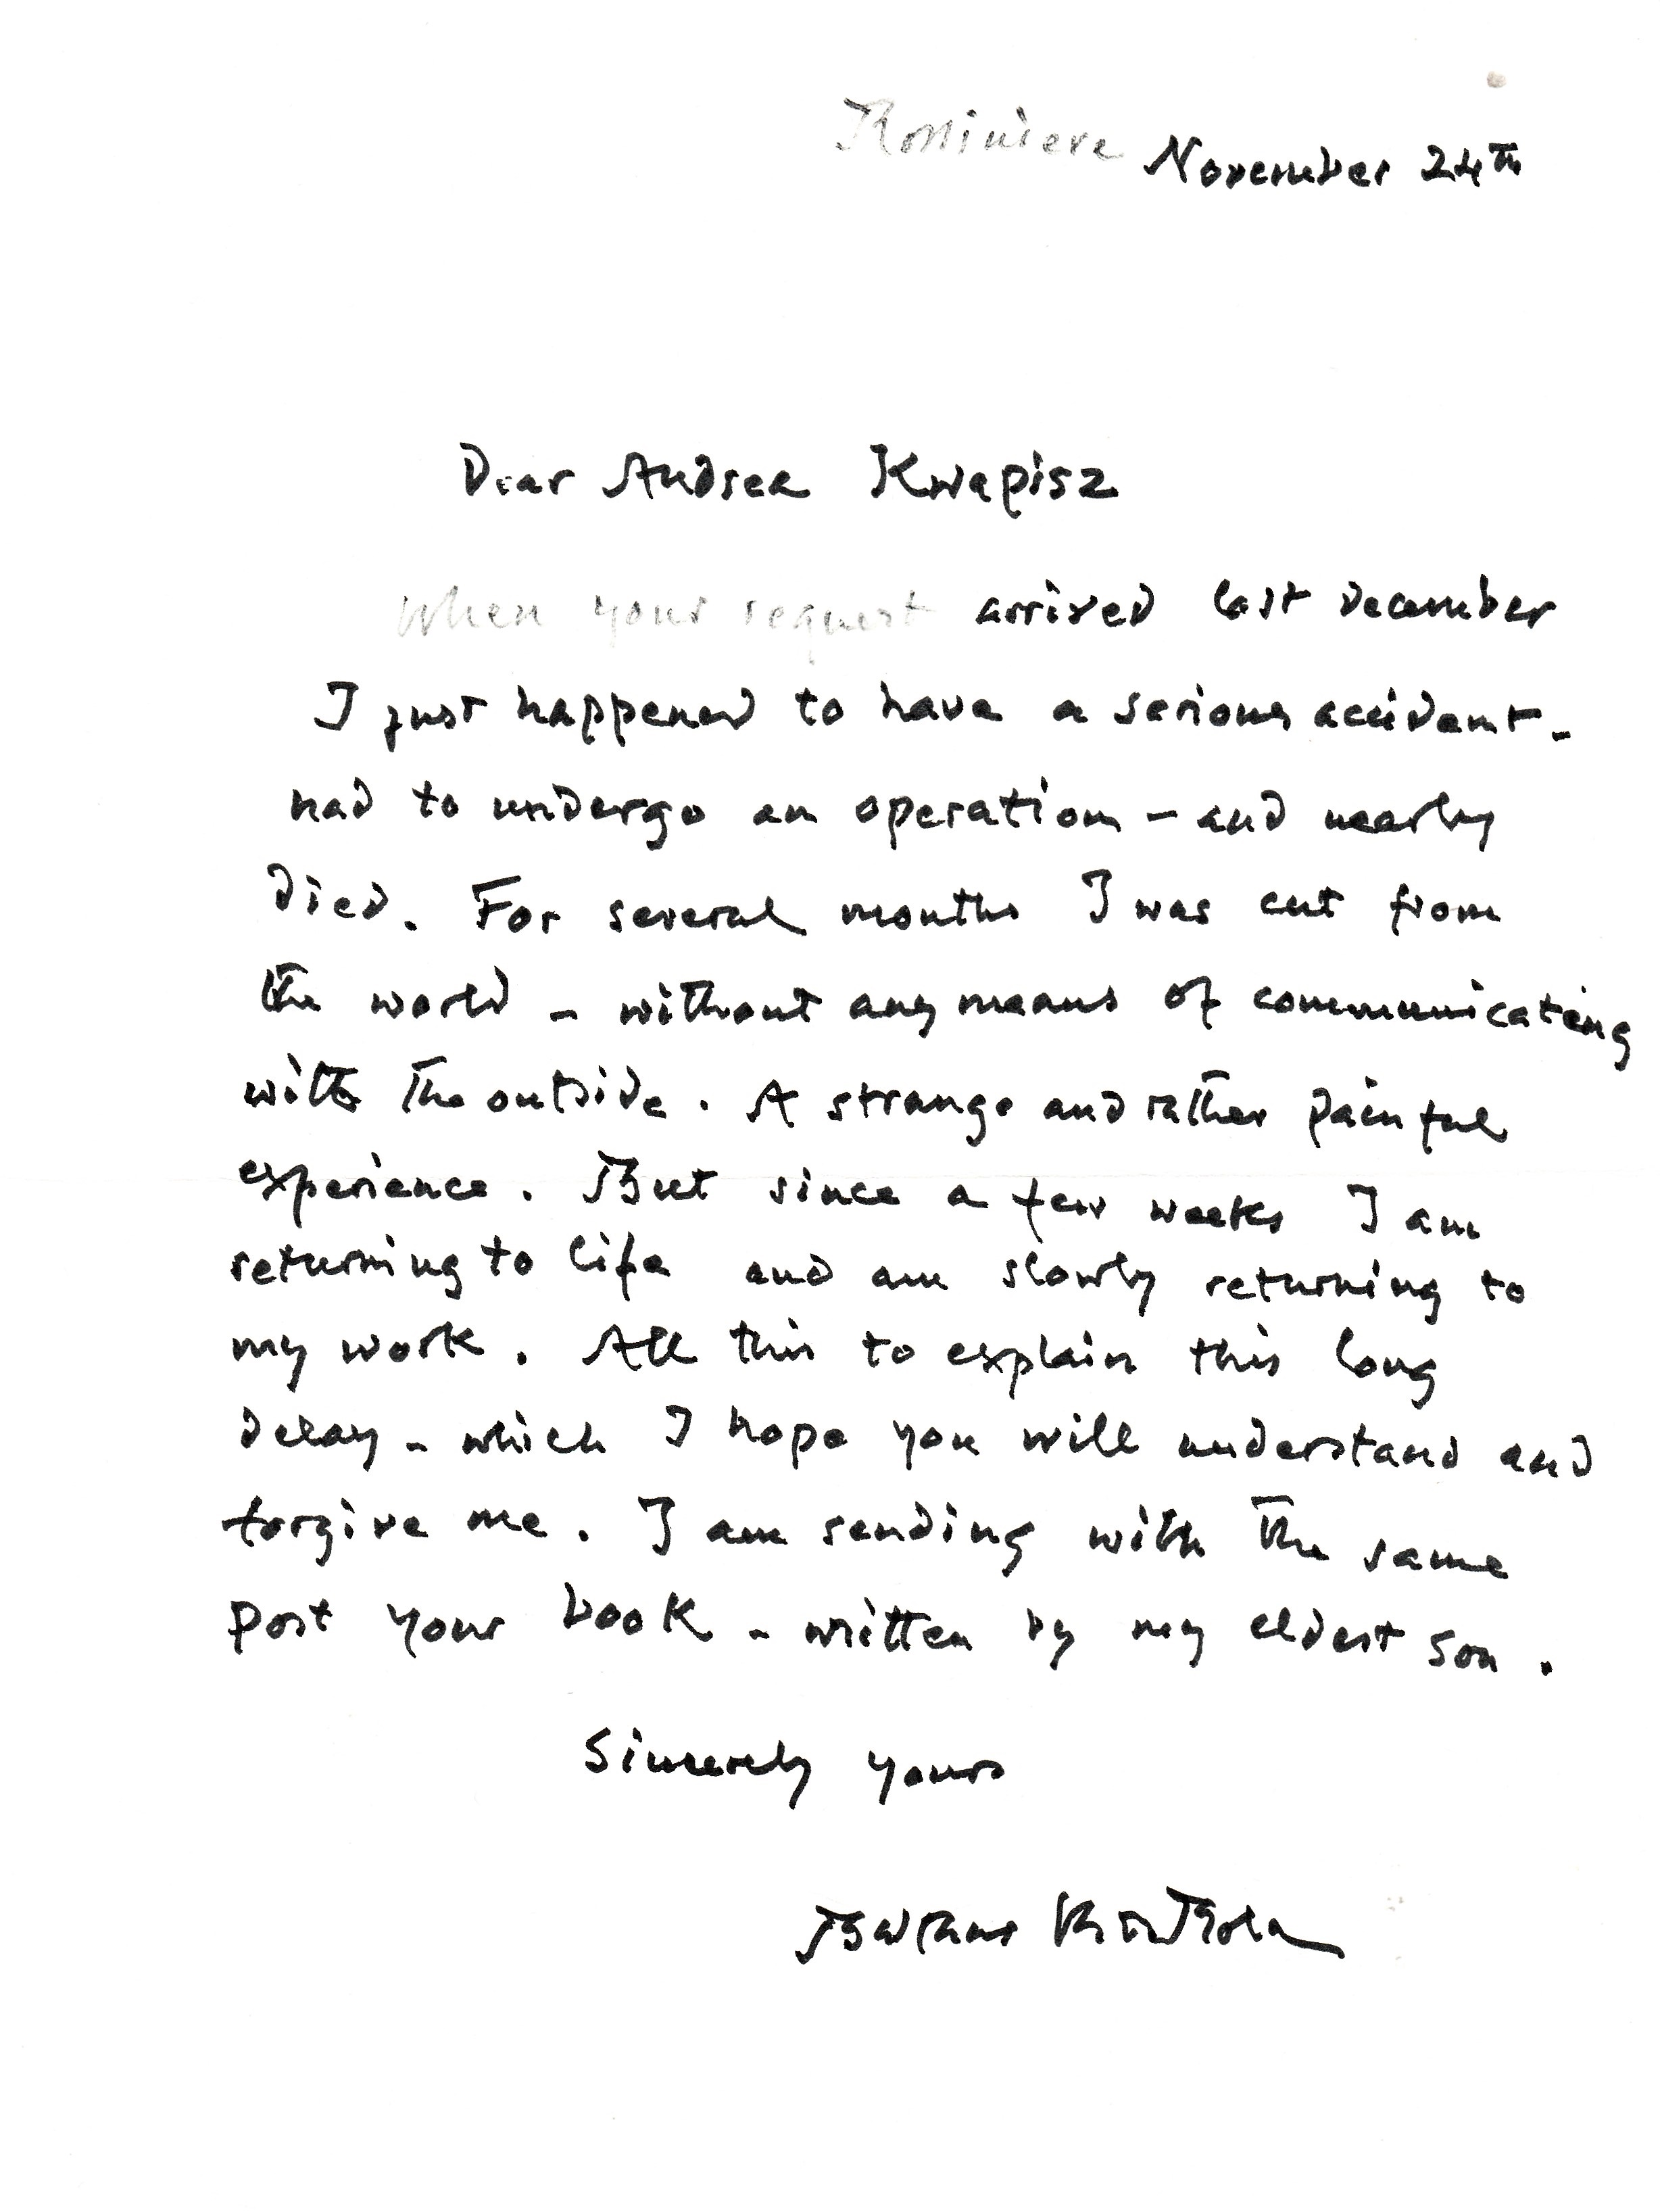 Rossiniere November 24th
Dear Andrea Kwapisz
When your request arrived last December
I just happened to have a serious accident -
had to undergo an operation - and nearly
died. For several months I was cut from
the world - without any means of communicating
with the outside. A strange and rather painful
experience. But since a few weeks I am
returning to life and am slowly returning to
my work. All this to explain this long
delay - which I hope you will understand and
forgive me. I am sending with the same
post your book - written by my eldest son.
Sincerely yours
Balthus